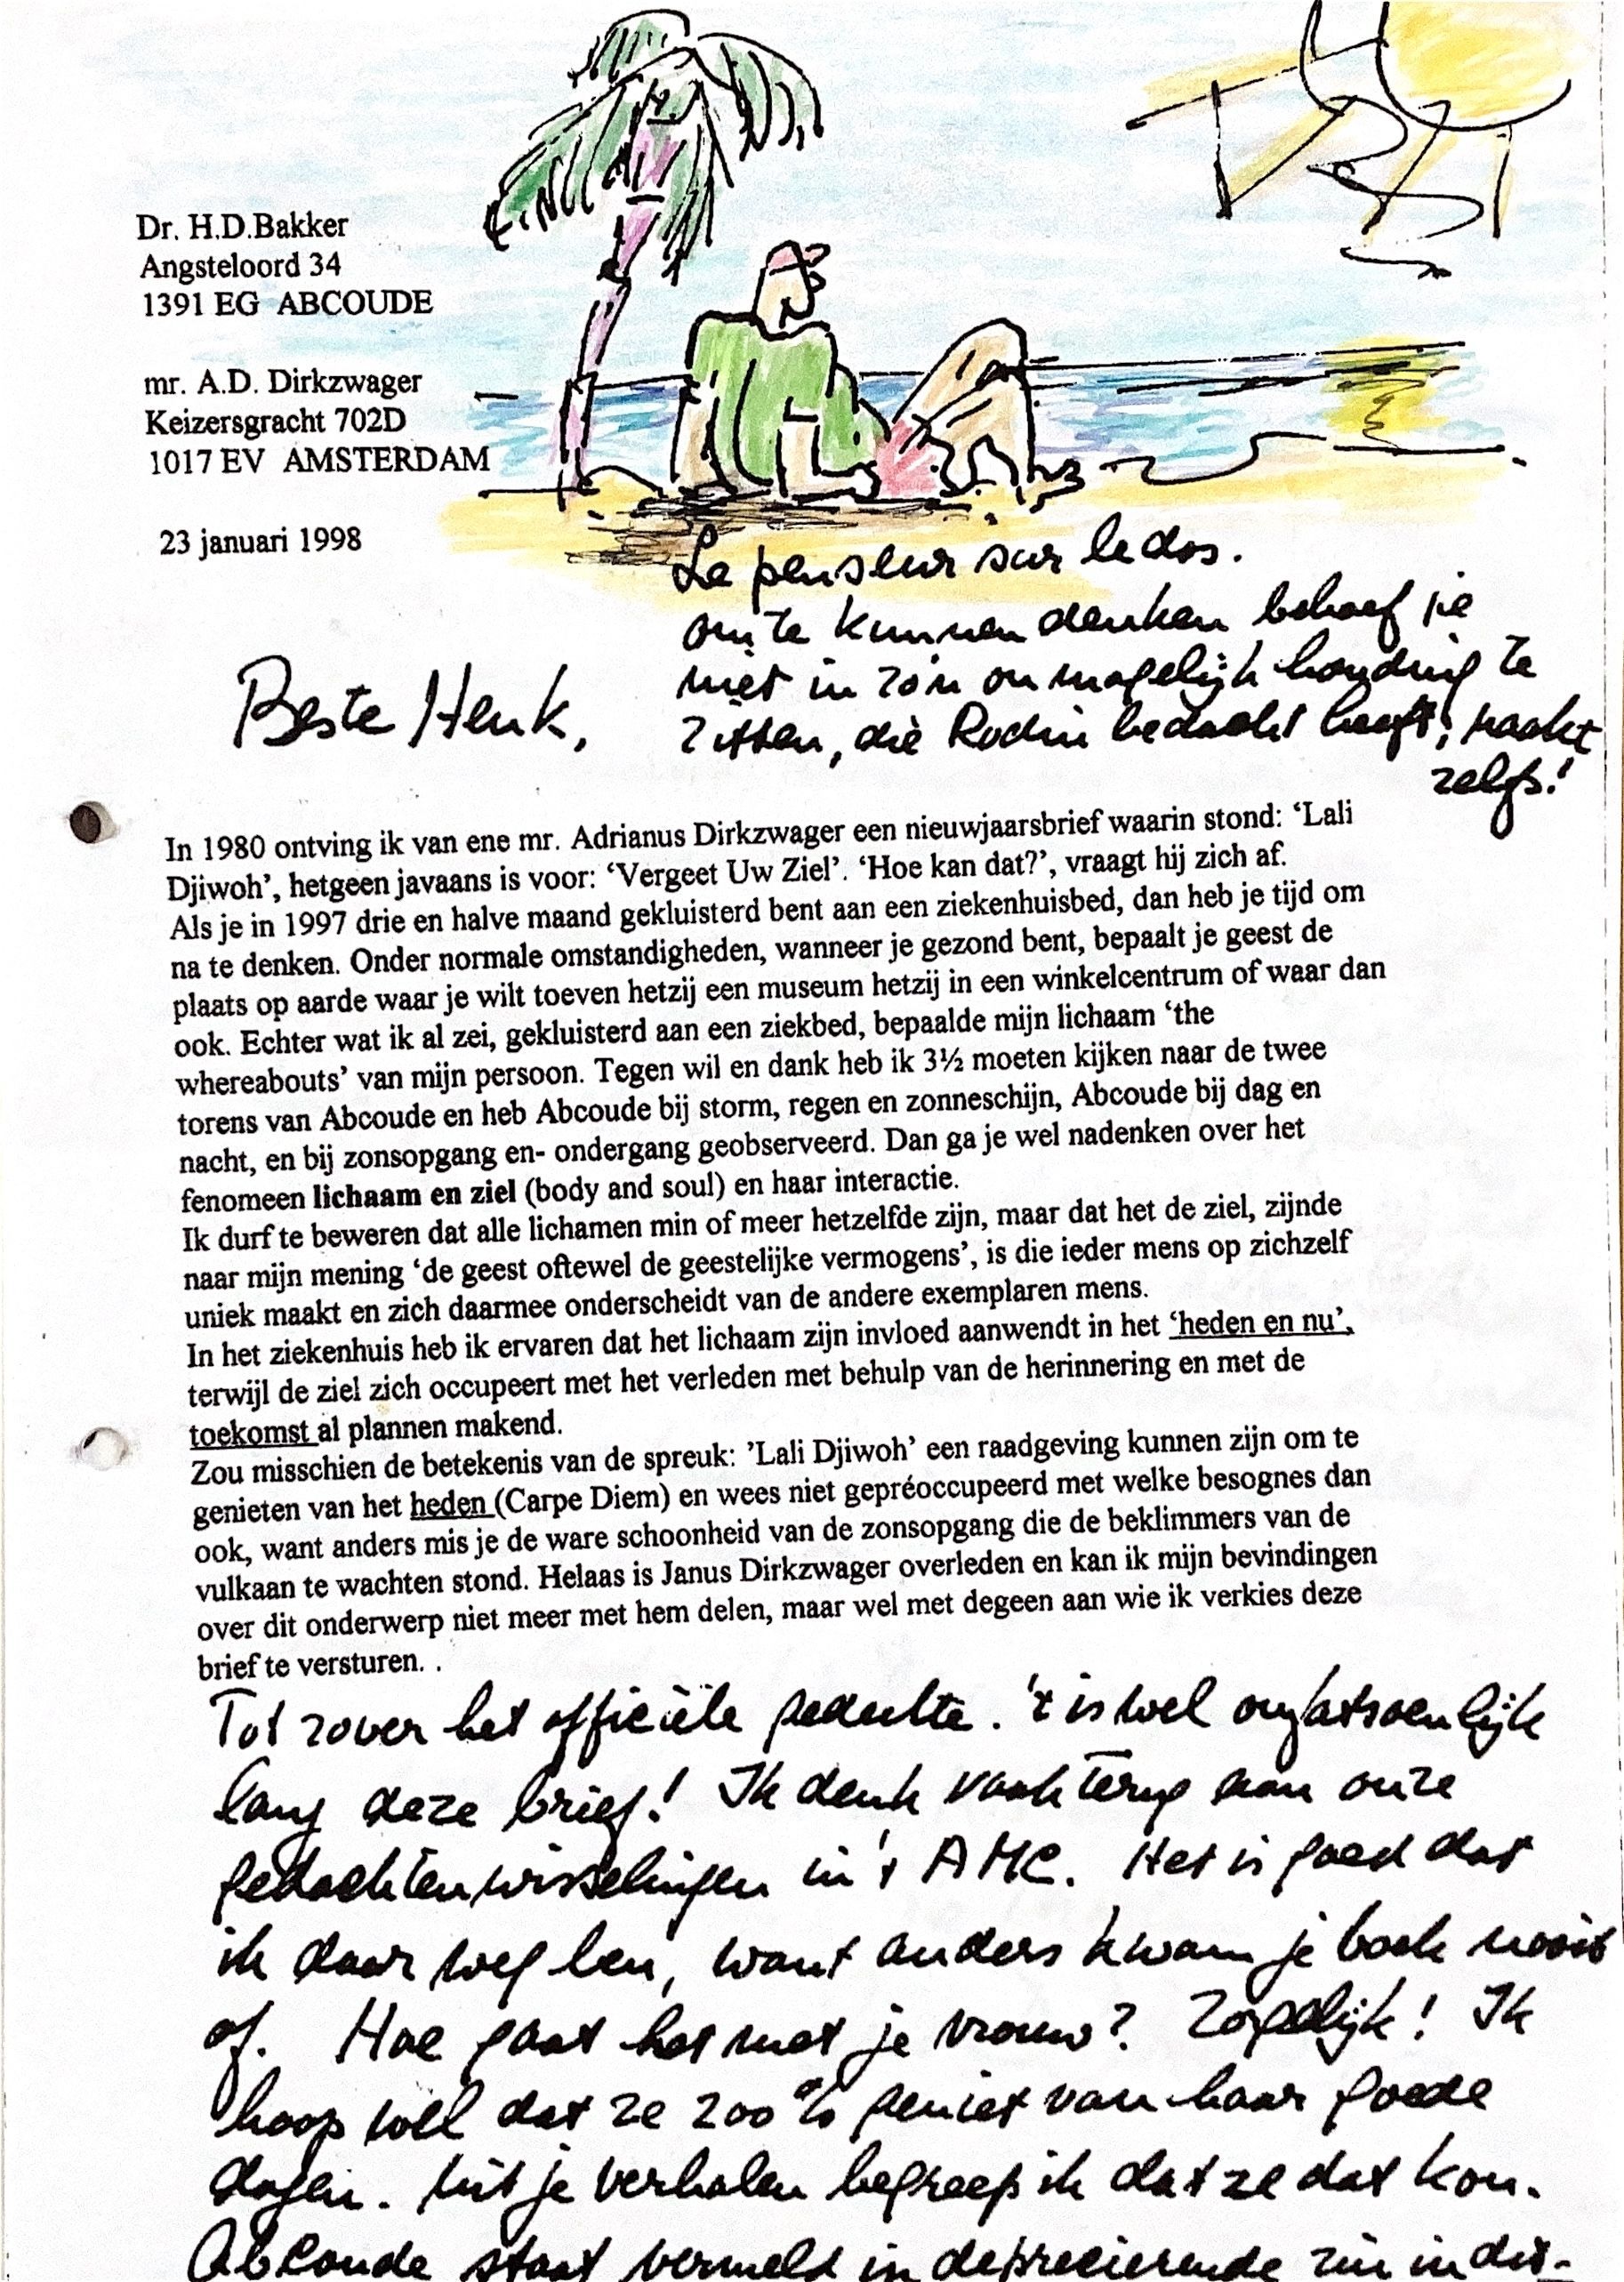 Dr. H.D.Bakker
Angsteloord 34
1391 EG ABCOUDE
mr. A.D. Dirkzwager
Keizersgracht 702D
1017 EV AMSTERDAM
23 januari 1998
Le penseur sur le dos.
om te kunnen denken behoef je
niet in zo'n onmogelijk houding te
zitten, die Rodin bedacht heeft, naakt
zelfs!
Beste Henk,
In 1980 ontving ik van ene mr. Adrianus Dirkzwager een nieuwjaarsbrief waarin stond: ‘Lali
Djiwoh’, hetgeen javaans is voor: ‘Vergeet Uw Ziel’. ‘Hoe kan dat?’, vraagt hij zich af.
Als je in 1997 drie en halve maand gekluisterd bent aan een ziekenhuisbed, dan heb je tijd om
na te denken. Onder normale omstandigheden, wanneer je gezond bent, bepaalt je geest de
plaats op aarde waar je wilt toeven hetzij een museum hetzij in een winkelcentrum of waar dan
ook. Echter wat ik al zei, gekluisterd aan een ziekbed, bepaalde mijn lichaam ‘the
whereabouts’ van mijn persoon. Tegen wil en dank heb ik 3½ moeten kijken naar de twee
torens van Abcoude en heb Abcoude bij storm, regen en zonneschijn, Abcoude bij dag en
nacht, en bij zonsopgang en- ondergang geobserveerd. Dan ga je wel nadenken over het
fenomeen lichaam en ziel (body and soul) en haar interactie.
Ik durf te beweren dat alle lichamen min of meer hetzelfde zijn, maar dat het de ziel, zijnde
naar mijn mening ‘de geest oftewel de geestelijke vermogens’, is die ieder mens op zichzelf
uniek maakt en zich daarmee onderscheidt van de andere exemplaren mens.
In het ziekenhuis heb ik ervaren dat het lichaam zijn invloed aanwendt in het ‘heden en nu’,
terwijl de ziel zich occupeert met het verleden met behulp van de herinnering en met de
toekomst al plannen makend.
Zou misschien de betekenis van de spreuk: ’Lali Djiwoh’ een raadgeving kunnen zijn om te
genieten van het heden (Carpe Diem) en wees niet gepréoccupeerd met welke besognes dan
ook, want anders mis je de ware schoonheid van de zonsopgang die de beklimmers van de
vulkaan te wachten stond. Helaas is Janus Dirkzwager overleden en kan ik mijn bevindingen
over dit onderwerp niet meer met hem delen, maar wel met degeen aan wie ik verkies deze
brief te versturen. .
Tot zover het officiële gedeelte. 't is wel onfatsoenlijk
lang deze brief! Ik denk vaak terug aan onze
gedachtenwisselingen in 't AMC. Het is goed dat
ik daar weg ben, want anders kwam je boek nooit
af. Hoe gaat het met je vrouw? Zorgelijk! Ik
hoop wel dat ze 200% geniet van haar goede
dagen. Uit je verhalen begreep ik dat ze dat kon.
Abcoude staat vermeld in deprecierende zin in dit-